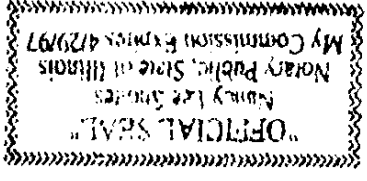 "OFFICIAL SEAL"
Nancy Lee
Notary Public, State of Illinois
My Commission Expires 4/29/97